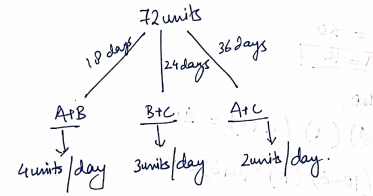 72 units
18 days 24 days 36 days
A+B B+C A+C
4 units/day 3 units/day 2 units/day.